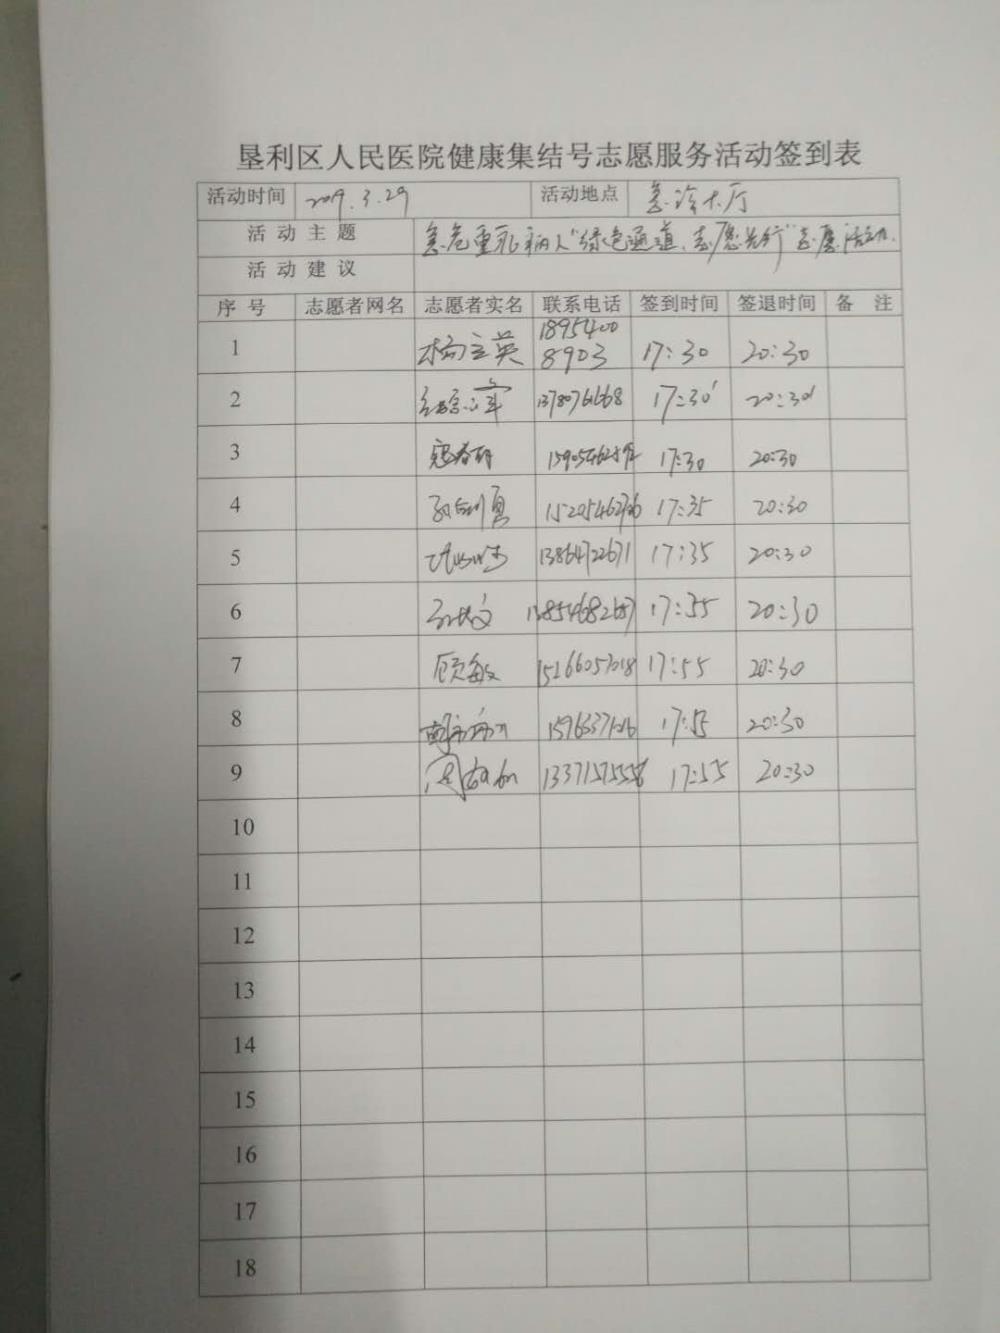 垦利区人民医院健康集结号志愿服务活动签到表
活动时间 2019.3.29 活动地点 急诊大厅
活动主题 急危重症病人"绿色通道、志愿先行"志愿活动.
活动建议
序号 志愿者网名 志愿者实名 联系电话 签到时间 签退时间 备注
1 杨立英 1895400
8903 17:30 20:30
2 13780761668 17:30' 20:30'
3 寇春研 17:30 20:30
4 孙剑勇 17:35 20:30
5 13864722671 17:35 20:30
6 17:35 20:30
7 顾敏 15266057018 17:55 20:30
8 17:55 20:30
9 13371575558 17:55 20:30
10
11
12
13
14
15
16
17
18